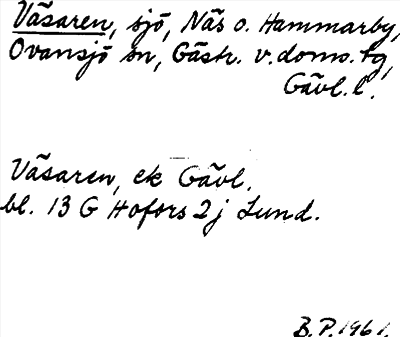 Väsaren, sjö, Näs o. Hammarby,
Ovansjö sn, Gästr. v. doms. tg,
Gävl. l.
Väsaren, ek Gävl.
bl. 13 G Hofors 2 j Lund.
B.P. 1961.